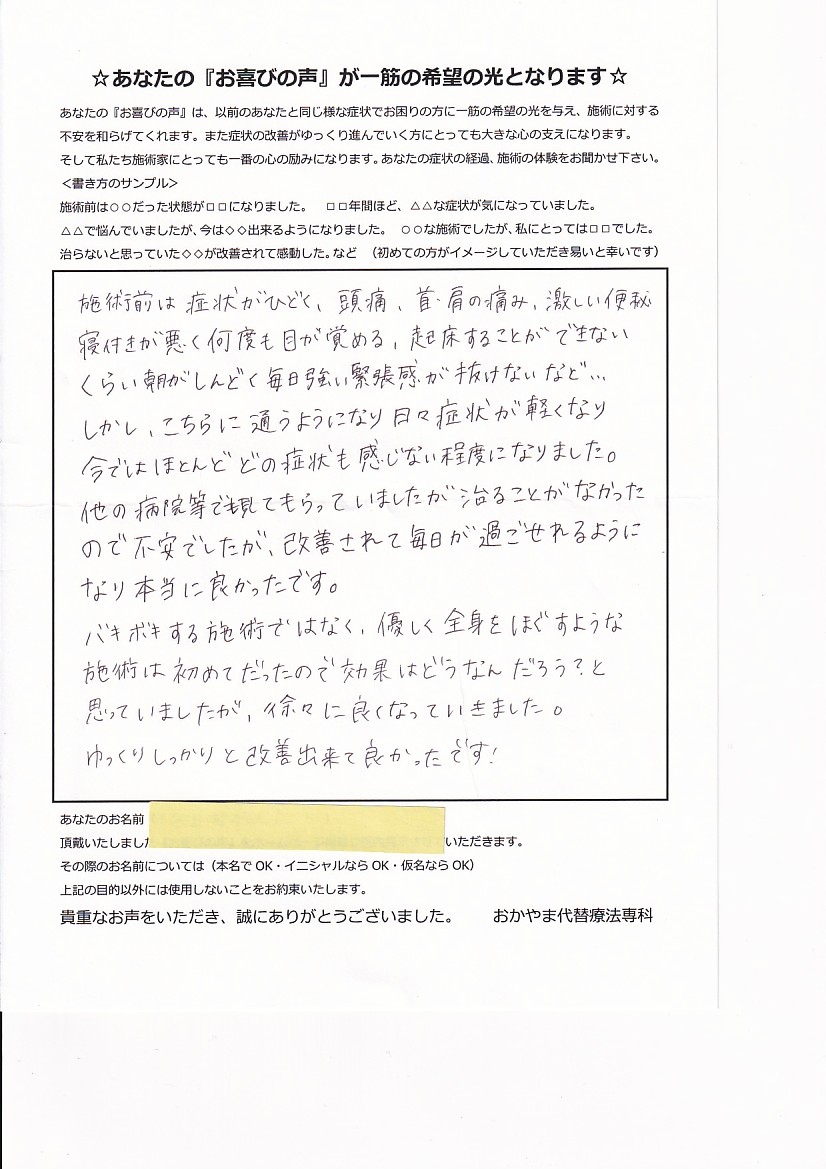 ☆あなたの『お喜びの声』が一筋の希望の光となります☆
あなたの『お喜びの声』は、以前のあなたと同じ様な症状でお困りの方に一筋の希望の光を与え、施術に対する
不安を和らげてくれます。また症状の改善がゆっくり進んでいく方にとっても大きな心の支えになります。
そして私たち施術家にとっても一番の心の励みになります。あなたの症状の経過、施術の体験をお聞かせ下さい。
＜書き方のサンプル＞
施術前は○○だった状態が□□になりました。　□□年間ほど、△△な症状が気になっていました。
△△で悩んでいましたが、今は◇◇出来るようになりました。　○○な施術でしたが、私にとっては□□でした。
治らないと思っていた◇◇が改善されて感動した。など　（初めての方がイメージしていただき易いと幸いです）
施術前は症状がひどく、頭痛、首・肩の痛み、激しい便秘
寝付きが悪く何度も目が覚める、起床することができない
くらい朝がしんどく毎日強い緊張感が抜けないなど…
しかし、こちらに通うようになり日々症状が軽くなり
今ではほとんどどの症状も感じない程度になりました。
他の病院等で観てもらっていましたが治ることがなかった
ので不安でしたが、改善されて毎日が過ごせれるように
なり本当に良かったです。
バキボキする施術ではなく、優しく全身をほぐすような
施術は初めてだったので効果はどうなんだろう？と
思っていましたが、徐々に良くなっていきました。
ゆっくりしっかりと改善出来て良かったです！
あなたのお名前
頂戴いたしました いただきます。
その際のお名前については（本名でOK・イニシャルならOK・仮名ならOK）
上記の目的以外には使用しないことをお約束いたします。
貴重なお声をいただき、誠にありがとうございました。　　おかやま代替療法専科